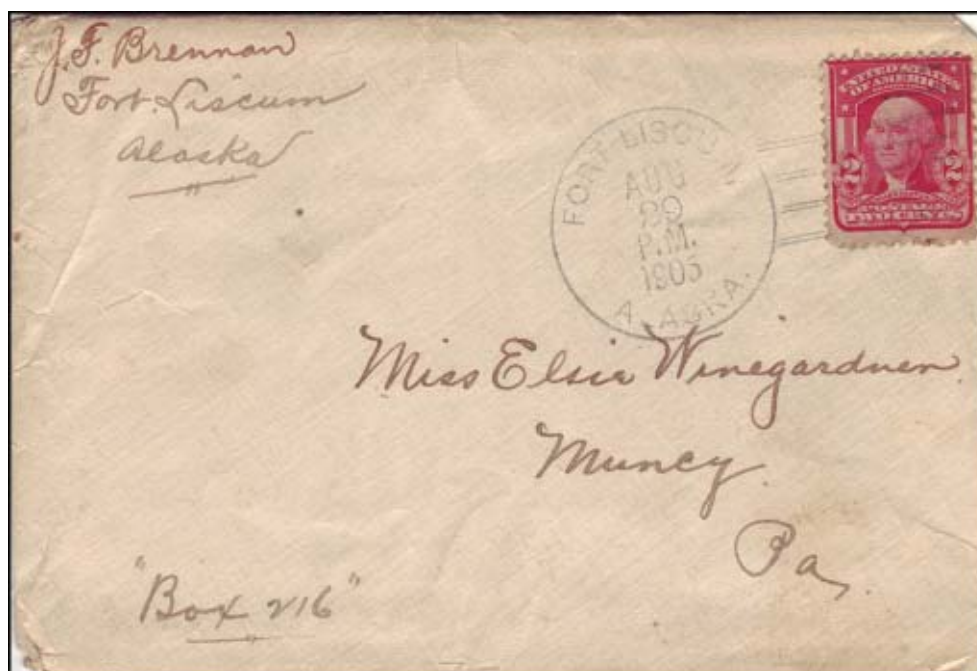 J. F. Brennan
Fort Liscum
Alaska
FORT LISCU
AUG
29
P.M.
1905
A ASKA.
UNITED STATES
OF AMERICA
2 2
POSTAGE
TWO CENTS
Miss Elsie Winegardner
Muncy.
Pa,
"Box 216"